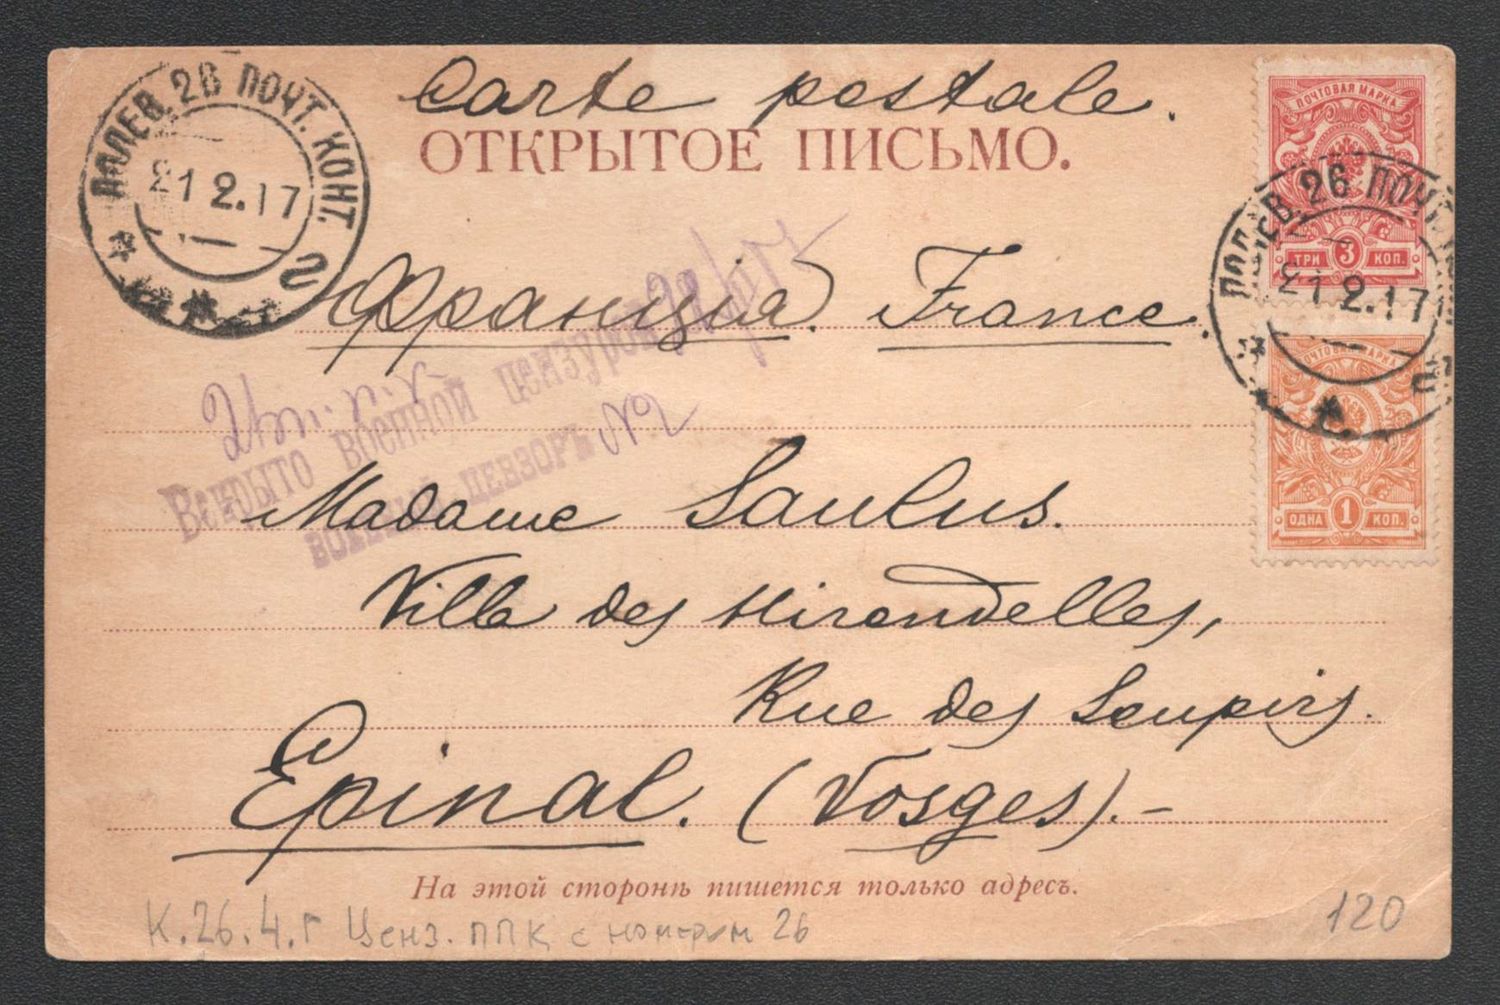 Carte postale.
ОТКРЫТОЕ ПИСЬМО.
ПОЛЕВ. 26 ПОЧТ. КОНТ. г
21.2.17
ПОЧТОВАЯ МАРКА
ТРИ 3 КОП.
ПОЛЕВ. 26 ПОЧТ.
21.2.17
ПОЧТОВАЯ МАРКА
ОДНА 1 КОП.
Франція. France.
Вскрыто военной цензурой
военный цензоръ №
Madame Saulus.
Villa des Hirondelles,
Rue des Soupirs.
Epinal. (Vosges).-
На этой сторонѣ пишется только адресъ.
К.26.4.г Ценз. ППК с номером 26
120